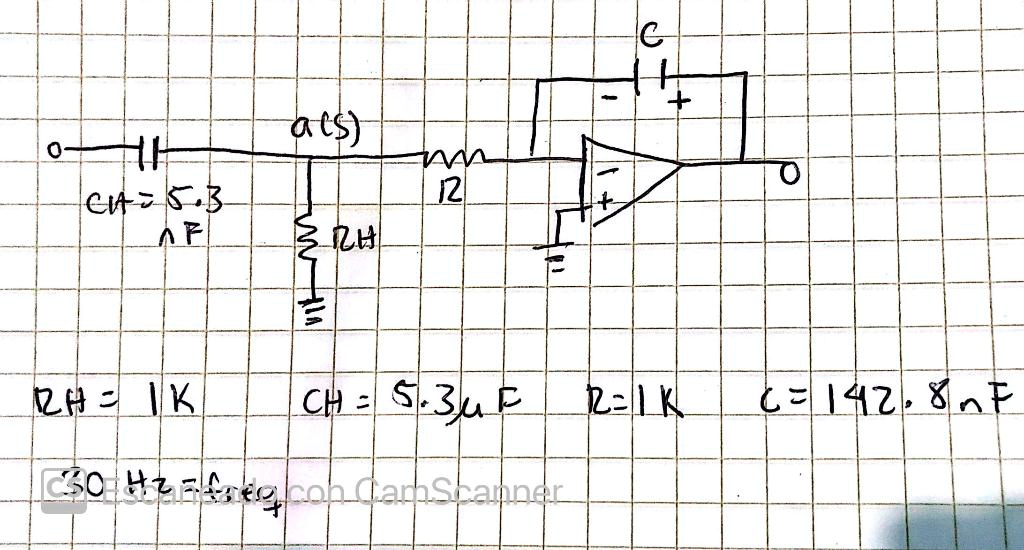 C
- +
a(s)
CH = 5.3
nF
R
-
+
RH
RH = 1K CH = 5.3µF R=1K C=142.8nF
30 Hz = freq
CS Escaneado con CamScanner